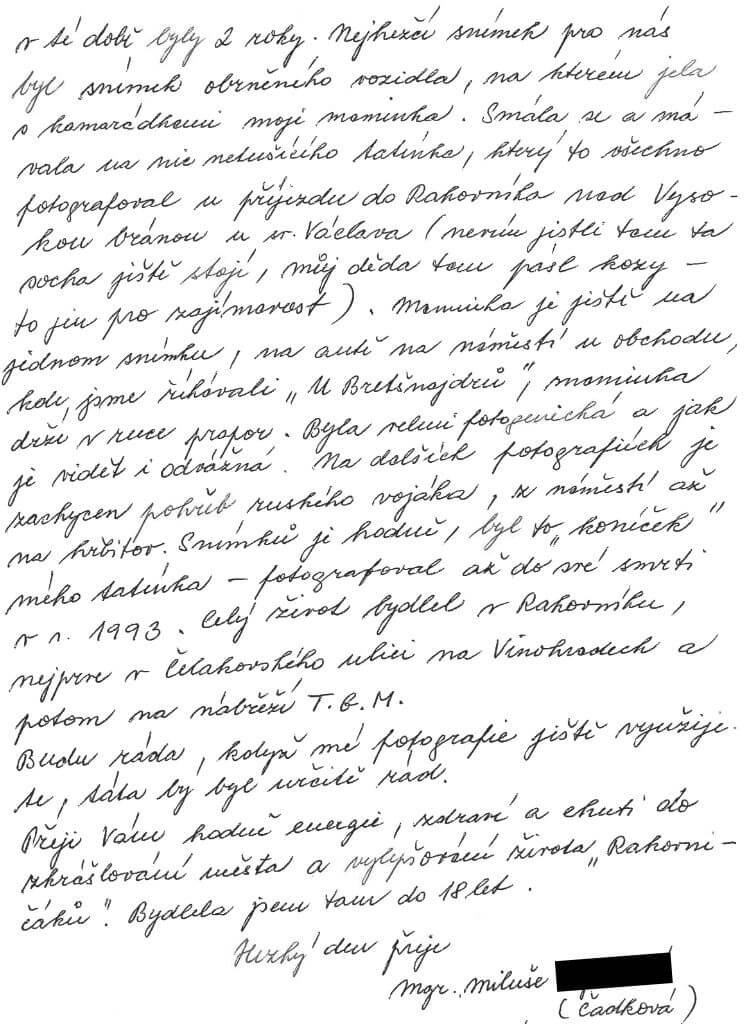 v té době byly 2 roky. Nejhezčí snímek pro nás
byl snímek obrněného vozidla, na kterém jela
s kamarádkami moje maminka. Smála se a má-
vala na nic netušícího tatínka, který to všechno
fotografoval u příjezdu do Rakovníka nad Vyso-
kou bránou u sv. Václava (nevím jistli tam ta
socha ještě stojí, můj děda tam pásl kozy -
to jen pro zajímavost). Maminka je ještě na
jednom snímku, na autě na náměstí u obchodu,
kde jsme říkávali „U Bretšnajdrů", maminka
drží v ruce prapor. Byla velmi fotogenická a jak
je vidět i odvážná. Na dalších fotografiích je
zachycen pohřeb ruského vojáka, z náměstí až
na hřbitov. Snímků je hodně, byl to „koníček"
mého tatínka - fotografoval až do své smrti
v r. 1993. Celý život bydlel v Rakovníku,
nejprve v Čelakovského ulici na Vinohradech a
potom na nábřeží T.G.M.
Budu ráda, když mé fotografie ještě využije-
te, táta by byl určitě rád.
Přeji Vám hodně energie, zdraví a chuti do
zkrášlování města a vylepšování života „Rakovni-
čáků". Bydlela jsem tam do 18 let.
Hezký den přeje
Mgr. Miluše
(Čadková)